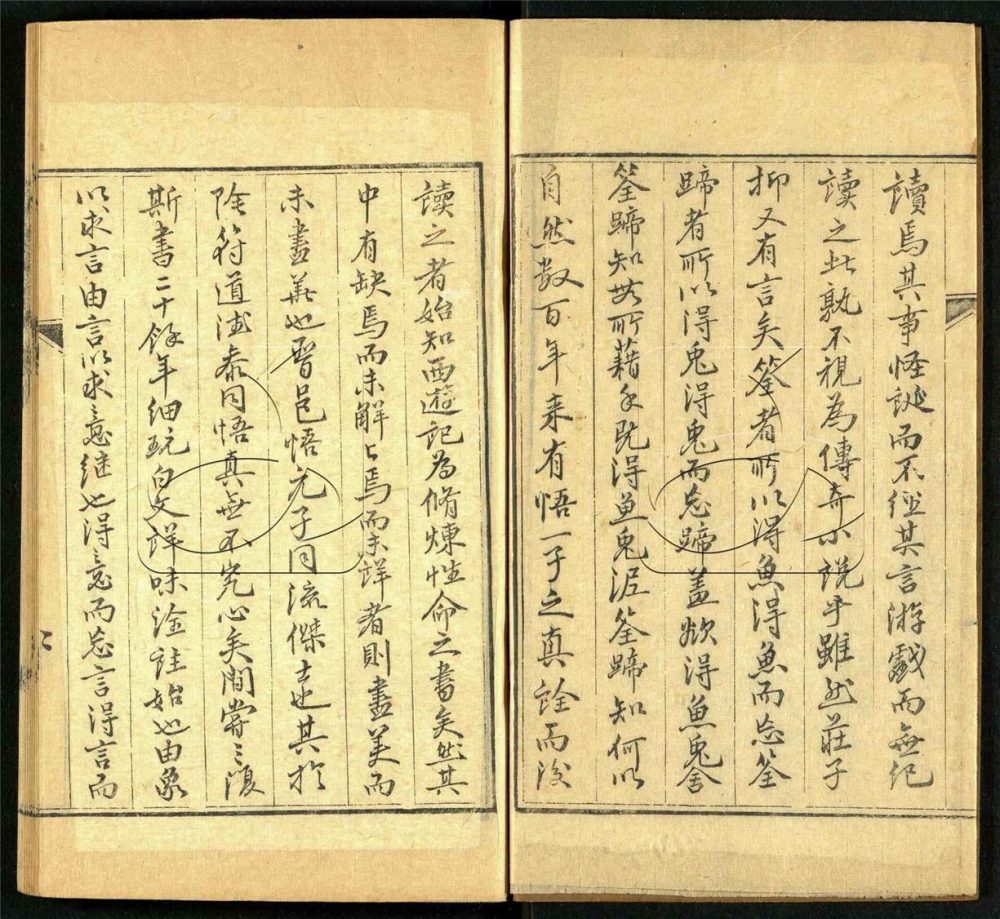 讀焉其事怪誕而不經其言游戲而無紀
讀之者孰不視為傳奇小說乎雖然莊子
抑又有言矣筌者所以得魚得魚而忘筌
蹄者所以得兔得兔而忘蹄盖欲得魚兔舍
筌蹄知無所藉手既得魚兔泥筌蹄知何以
自然數百年来有悟一子之真詮而後
讀之者始知西遊記為脩煉性命之書矣然其
中有缺焉而未解解焉而未詳者則盡美而
未盡善也晉邑悟元子同流傑士也其於
陰符道德泰同悟真無不究心矣間嘗嘗復
斯書二十餘年細玩白文詳味詮註始也由象
以求言由言以求意继也得意而忘言得言而